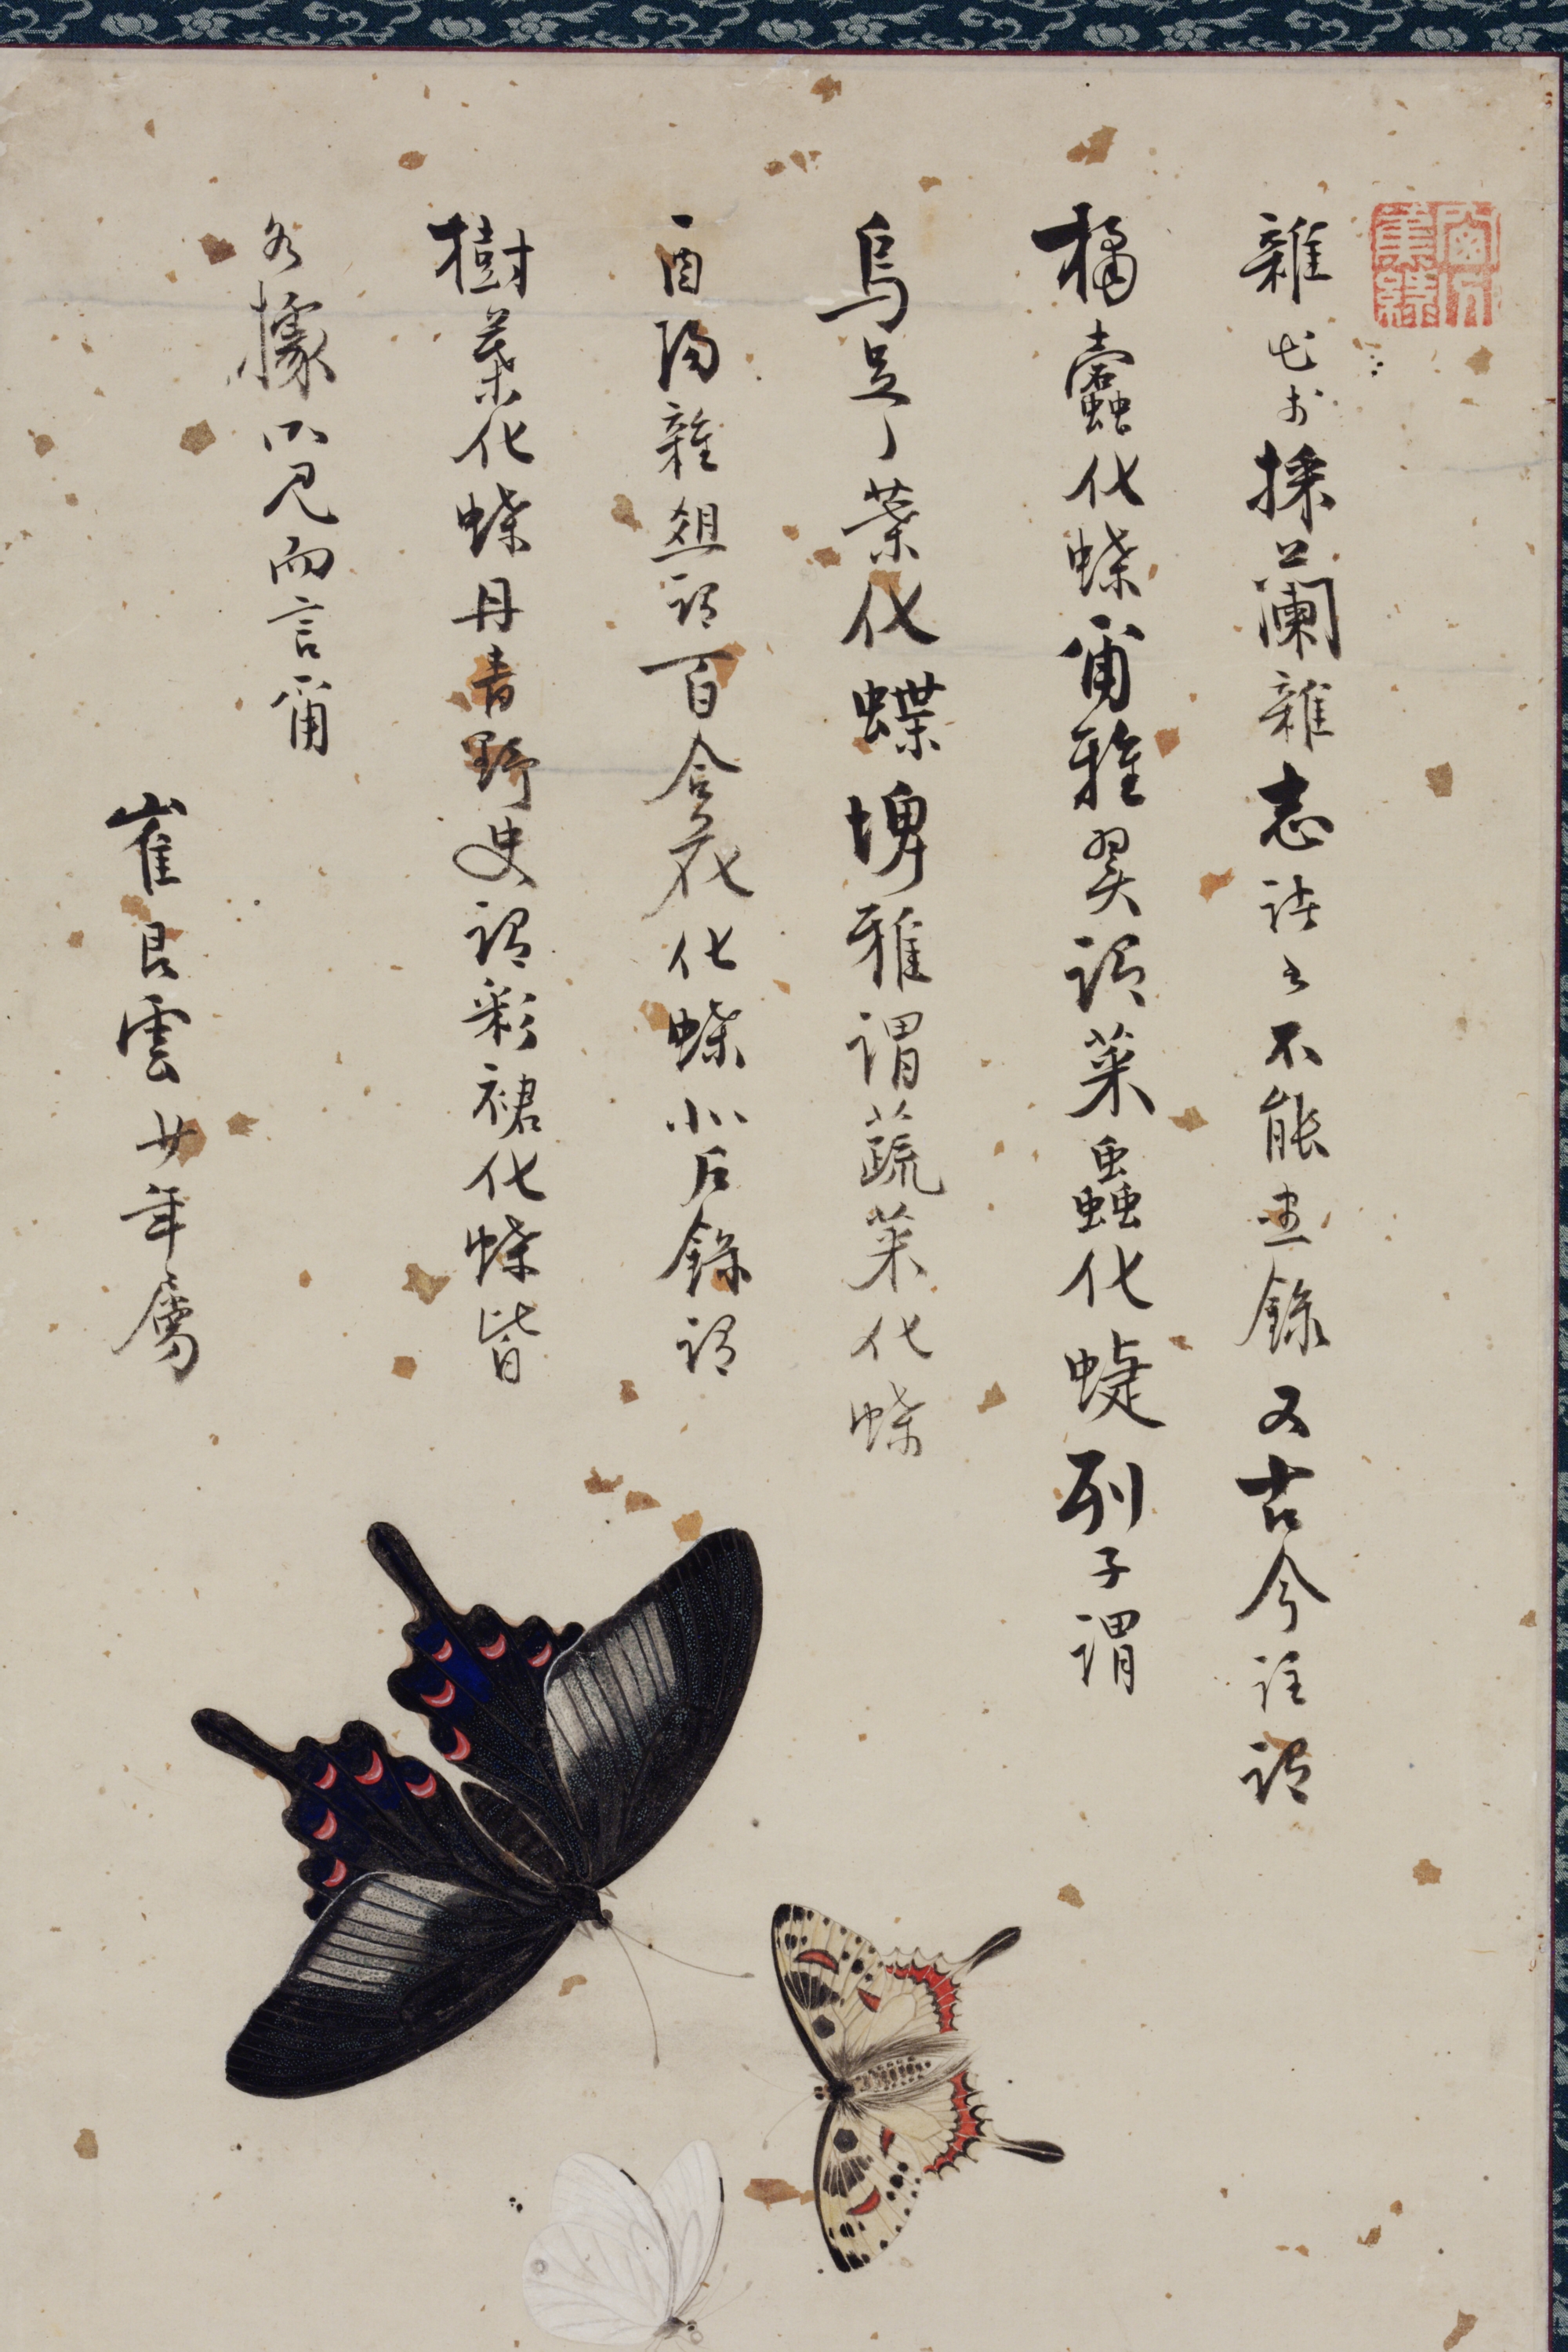 雜出於採蘭雜志諸書不能盡錄又古今注謂
橘蠹化蝶爾雅翼謂菜蟲化蜨列子謂
烏足之葉化蝶埤雅謂蔬菜化蝶
酉陽雜俎謂百合花化蝶北戶錄謂
樹葉化蝶丹青野史謂彩裙化蝶皆
各據所見而言爾
崔艮雲年屬